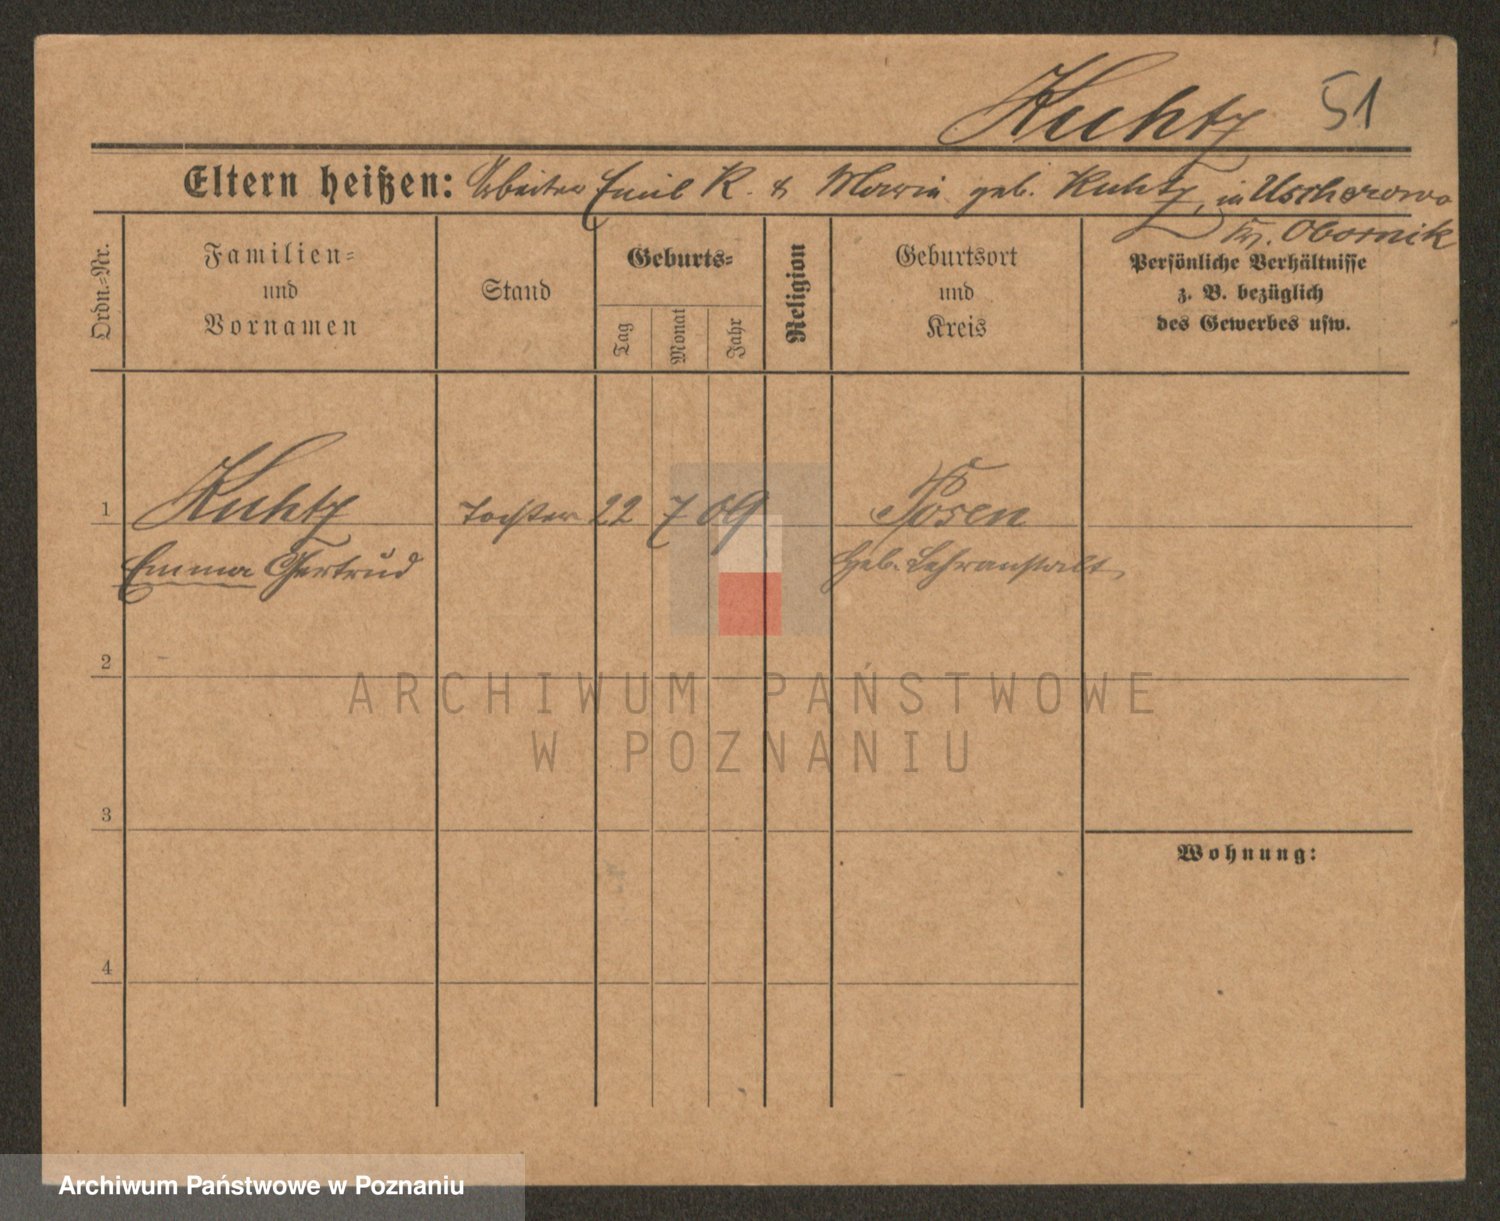 Kuhtz 51
Eltern heißen: Arbeiter Emil K. & Maria geb. Kuhtz, in Uscherowo
Kr. Obornik
Ordn.=Nr.
Familien=
und
Vornamen
Stand
Geburts=
Tag
Monat
Jahr
Religion
Geburtsort
und
Kreis
Persönliche Verhältnisse
z. B. bezüglich
des Gewerbes usw.
1 Kuhtz Tochter 22 7 09 Posen
Emma Gertrud Heb. Lehranstalt
2
ARCHIWUM PAŃSTWOWE
W POZNANIU
3
Wohnung:
4
Archiwum Państwowe w Poznaniu